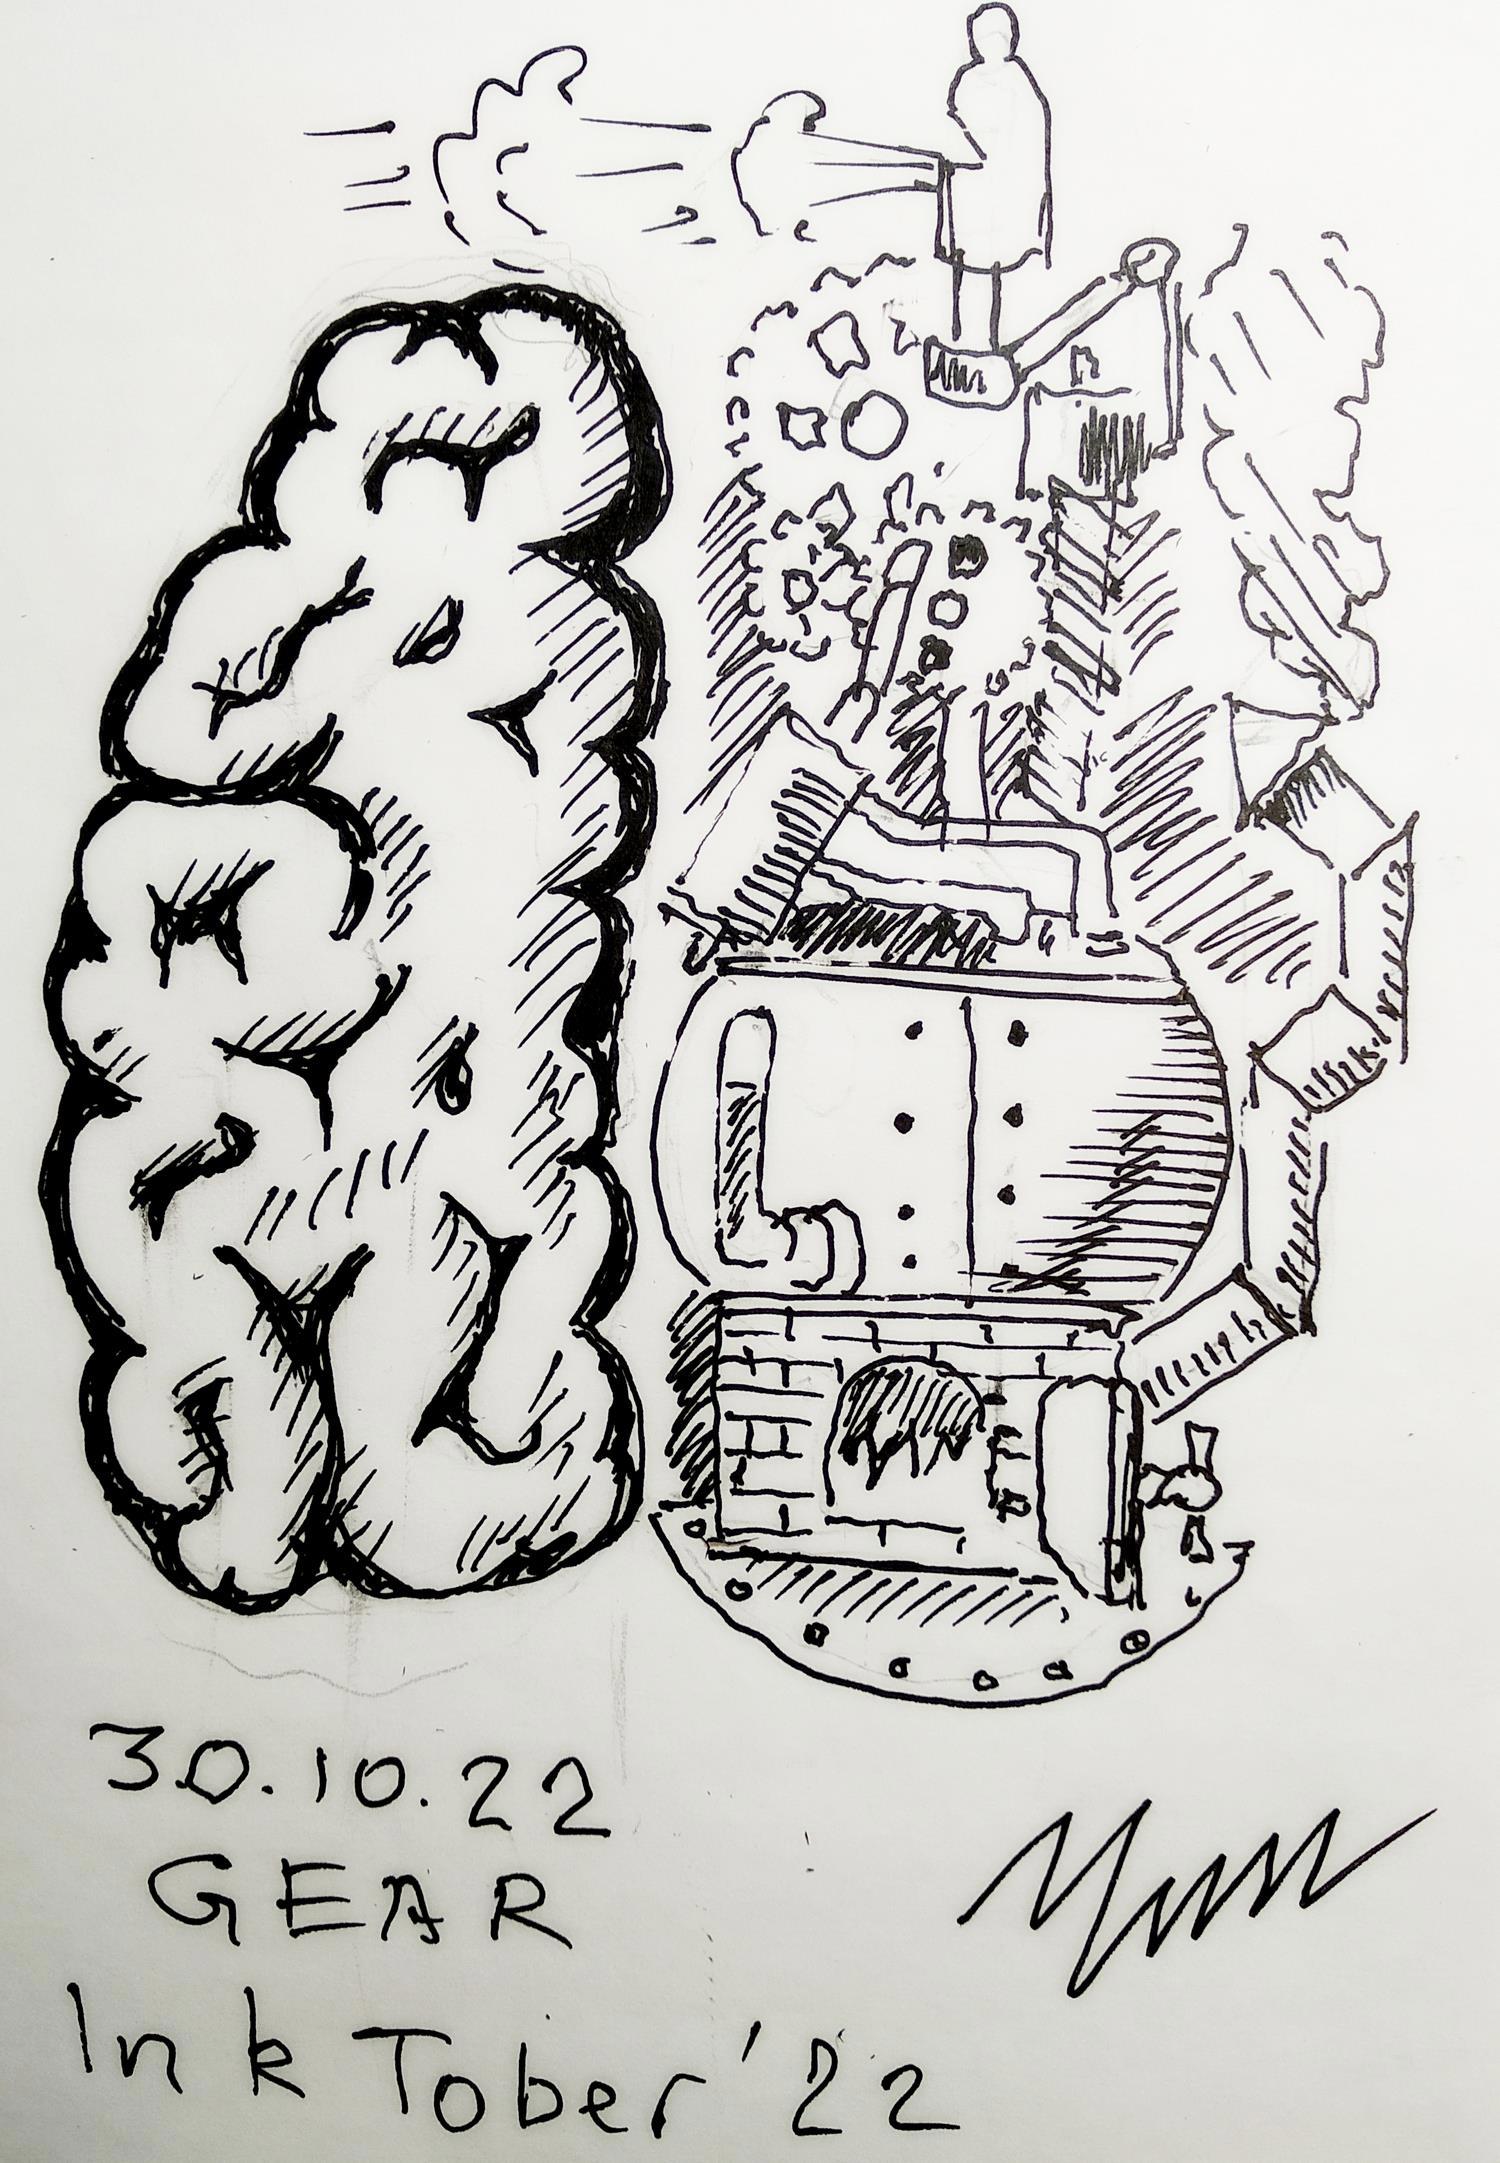 30.10.22
GEAR
InkTober '22